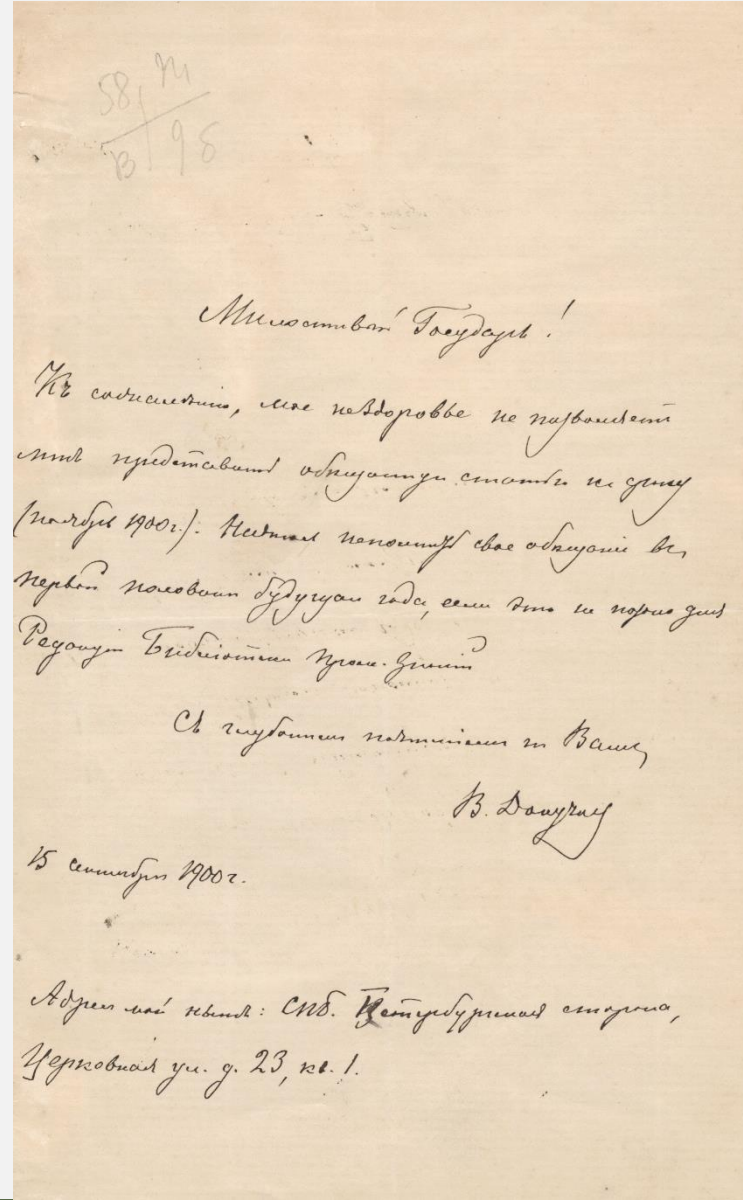 58 III
В 98
Милостивый Государь!
Къ сожалѣнію, мое нездоровье не позволяетъ
мнѣ представить обѣщанную статью къ сроку
(ноябрь 1900 г.). исполнить свое обѣщаніе въ
первой половинѣ будущаго года, если это не поздно для
Редакціи Библіотеки пром. знаній
Съ глубокимъ почтеніемъ къ Вамъ,
В. Докучаевъ
15 сентября 1900 г.
Адресъ мой нынѣ: СПб. Петербургская сторона,
Церковная ул. д. 23, кв. 1.